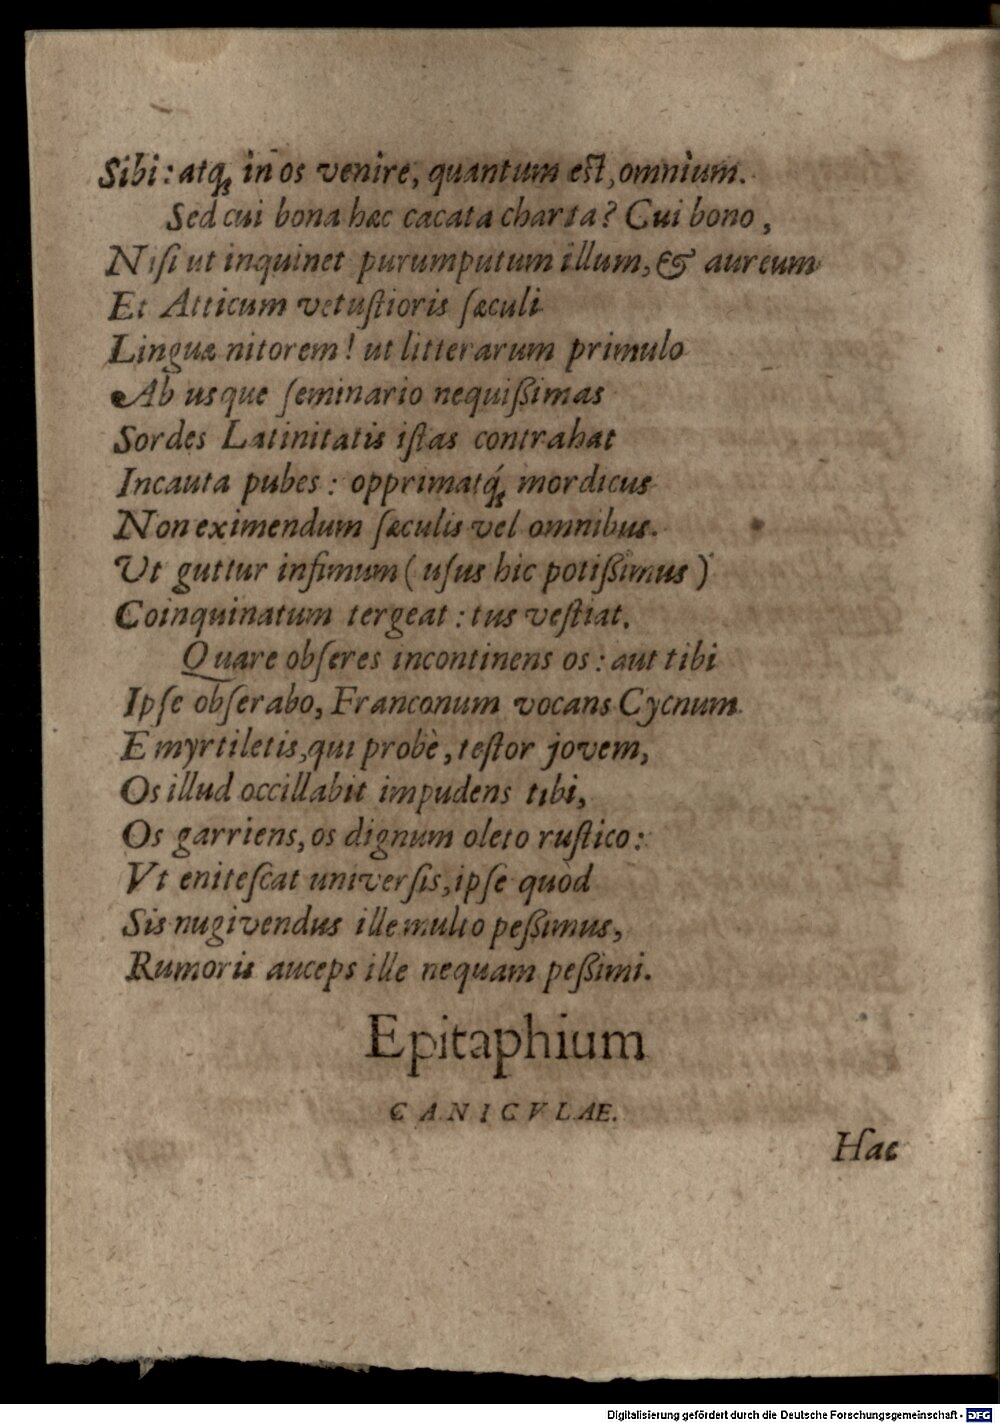 Sibi: atq́; in os venire, quantum est, omnium.
Sed cui bona hæc cacata charta? Cui bono,
Niſi ut inquinet purumputum illum, & aureum
Et Atticum vetuſtioris ſæculi
Linguæ nitorem! ut litterarum primulo
Ab usque ſeminario nequißimas
Sordes Latinitatis iſtas contrahat
Incauta pubes: opprimatq́; mordicus
Non eximendum ſæculis vel omnibus.
Ut guttur infimum (uſus hic potißimus)
Coinquinatum tergeat: tus veſtiat.
Quare obſeres incontinens os: aut tibi
Ipſe obſerabo, Franconum vocans Cycnum
E myrtiletis, qui probè, teſtor jovem,
Os illud occillabit impudens tibi,
Os garriens, os dignum oleto ruſtico:
Vt eniteſcat univerſis, ipſe quòd
Sis nugivendus ille multo peßimus,
Rumoris auceps ille nequam peßimi.
Epitaphium
CANICVLAE.
Hac
Digitalisierung gefördert durch die Deutsche Forschungsgemeinschaft - DFG